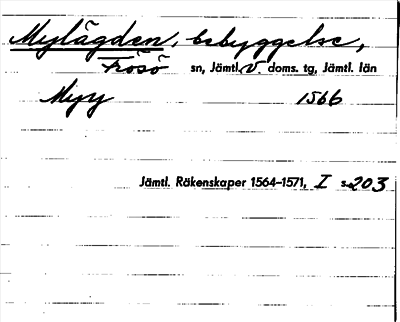 Mylägden, bebyggelse,
Frösö sn, Jämtl. V. doms. tg, Jämtl. län
Myy 1566
Jämtl. Räkenskaper 1564-1571, I s. 203